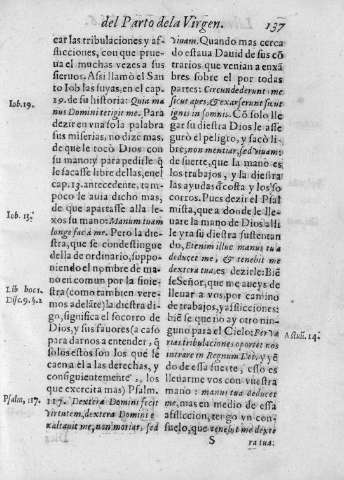 del Parto de la Virgen.
137
car las tribulaciones y af-
flicciones, con que prue-
ua el muchas vezes a sus
sieruos. Assi llamò el San
to Iob las suyas, en el cap.
19. de su historia: Quia ma-
nus Domini tetigit me. Para
dezir en vna sola palabra
sus miserias, no dize mas,
de que le tocò Dios con
su mano: y para pedirle q̃
le sacasse libre dellas, en el
cap. 13. antecedente, tam-
poco le auia dicho mas,
de que apartasse alla le-
xos su mano: Manum tuam
longe fac à me. Pero la die-
stra, que se condestingue
della de ordinario, suppo-
niendo el nombre de ma-
no en comun por la sinie-
stra (como tambien vere-
mos adelãte) la diestra di-
go, significa el socorro de
Dios, y sus fauores (a caso
para darnos a entender, q̃
solos estos son los que le
caen a el a las derechas, y
consiguientemente, los
que exercita mas) Psalm.
117. Dextera Domini fecit
virtutem, dextera Domini e-
xaltauit me, non moriar, sed
Iob. 19.
Iob. 13.
Lib hoc 1.
Disc. 9. §. 2
Psalm. 117.
viuam. Quando mas cerca
do estaua Dauid de sus cõ
trarios, que venian a enxã
bres sobre el por todas
partes: Circundederunt me
sicut apes, & exarserunt sicut
ignis in spinis. Cõ solo lle-
gar su diestra Dios le asse-
gurò el peligro, y sacò li-
bre; non moriar, sed viuam:
de suerte, que la mano es
los trabajos, y la diestra
las ayudas d̃ costa y los so-
corros. Pues dezir el Psal
mista, que a donde le lle-
uare la mano de Dios alli
le yra su diestra sustentan-
do, Etenim illuc manus tua
deducet me, & tenebit me
dextera tua: es dezirle: Biẽ
se Señor, que me aueys de
lleuar a vos, por camino
de trabajos, y aflicciones:
biẽ se que no ay otro nin-
guno para el Cielo: Per va
rias tribulationes oportet nos
intrare in Regnum Dei, y quã
do de essa fuerte, esso es
lleuarme vos con vuestra
mano: manus tua deducet
me, mas en medio de essa
afliccion, tengo vn con-
suelo, que tenebit me dexte
Actuũ. 14.
S
ra tua: